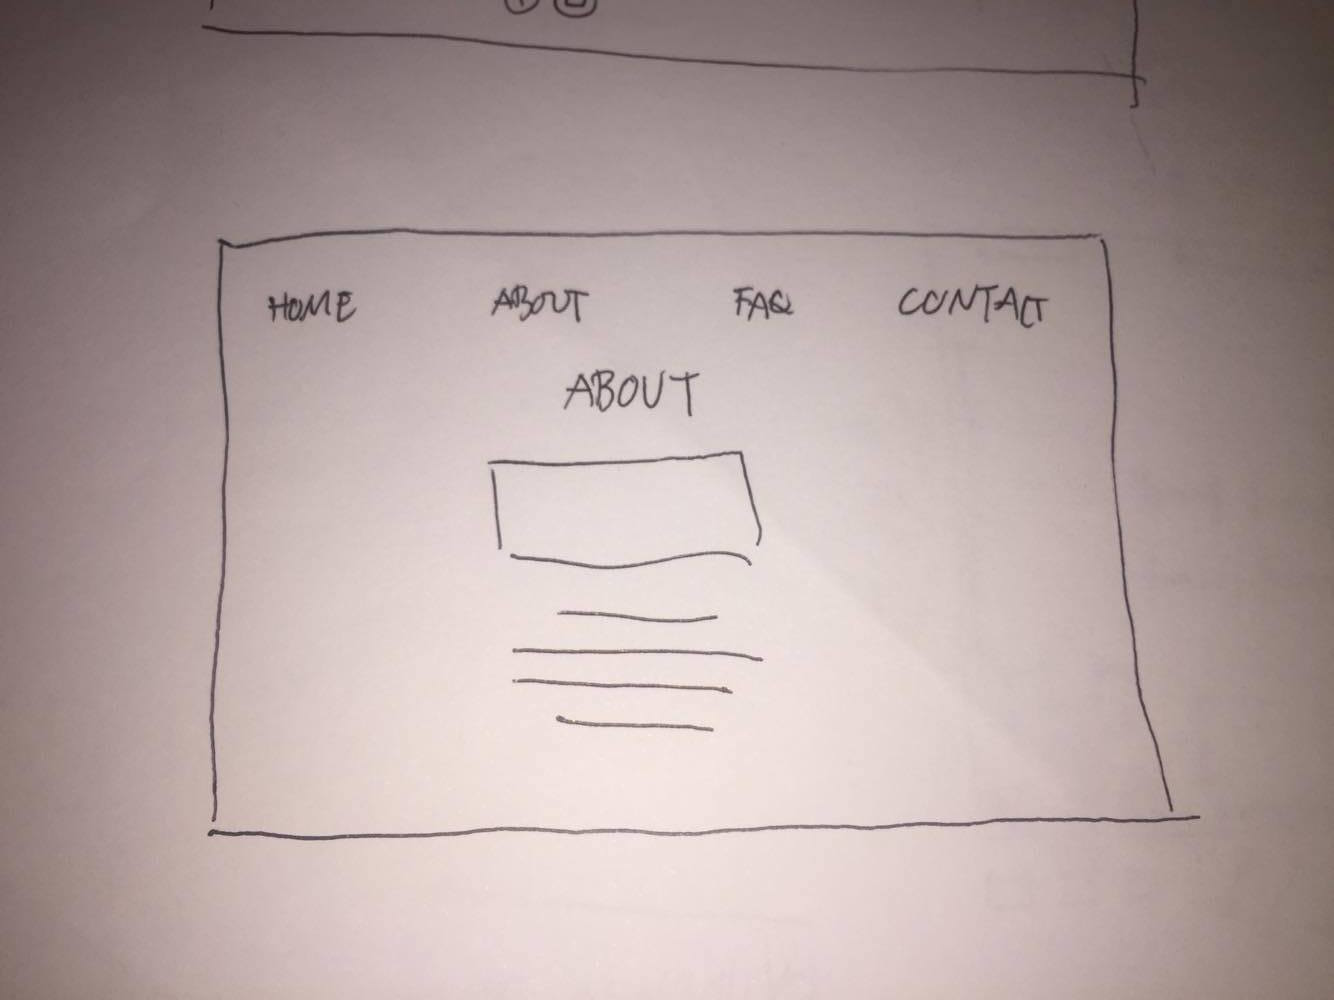 HOME ABOUT FAQ CONTACT
ABOUT